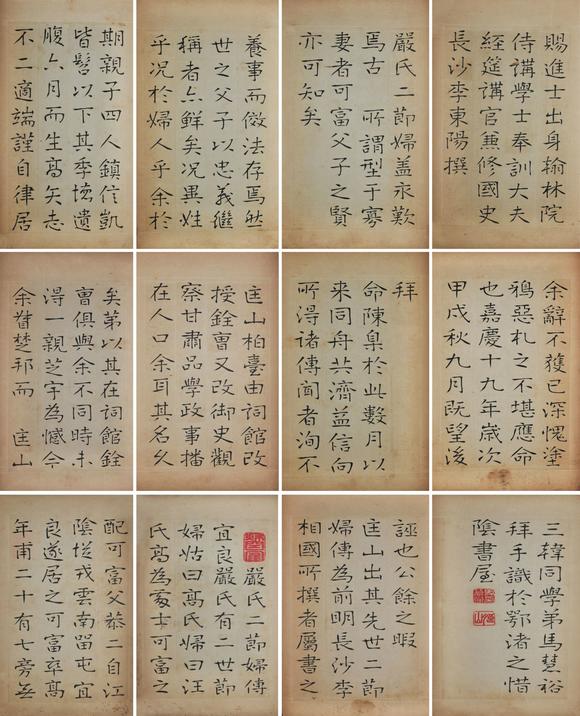 嚴氏二節婦傳
宜良嚴氏有二世節
婦姑曰高氏婦曰汪
氏高爲處士可富之
配可富父恭二自江
陰從戎雲南留屯宜
良遂居之可富卒高
年甫二十有七旁無
期親子四人鎮信凱
皆髫以下其季遺
腹六月而生高矢志
不二適端謹自律居
養事而後法存焉然
世之父子以忠義繼
稱者亦鮮矣況異姓
乎況於婦人乎余於
嚴氏二節婦蓋永歎
焉古 所謂型于寡
妻者可富父子之賢
亦可知矣
賜進士出身翰林院
侍講學士奉訓大夫
經筵講官兼修國史
長沙李東陽撰
匡山柏臺由詞館改
授銓曹又改御史觀
察甘肅品學政事播
在人口余耳其名久
矣第以其在詞館銓
曹俱與余不同時未
得一親芝宇爲憾今
余督楚邦而 匡山
拜
命陳臬於此數月以
來同舟共濟益信向
所得諸傳聞者洵不
誣也公餘之暇
匡山出其先世二節
婦傳爲前明長沙李
相國所撰者屬書之
余辭不獲已深愧塗
鴉惡札之不堪應命
也嘉慶十九年歲次
甲戌秋九月既望後
三韓同學弟馬慧裕
拜手識於鄂渚之惜
陰書屋